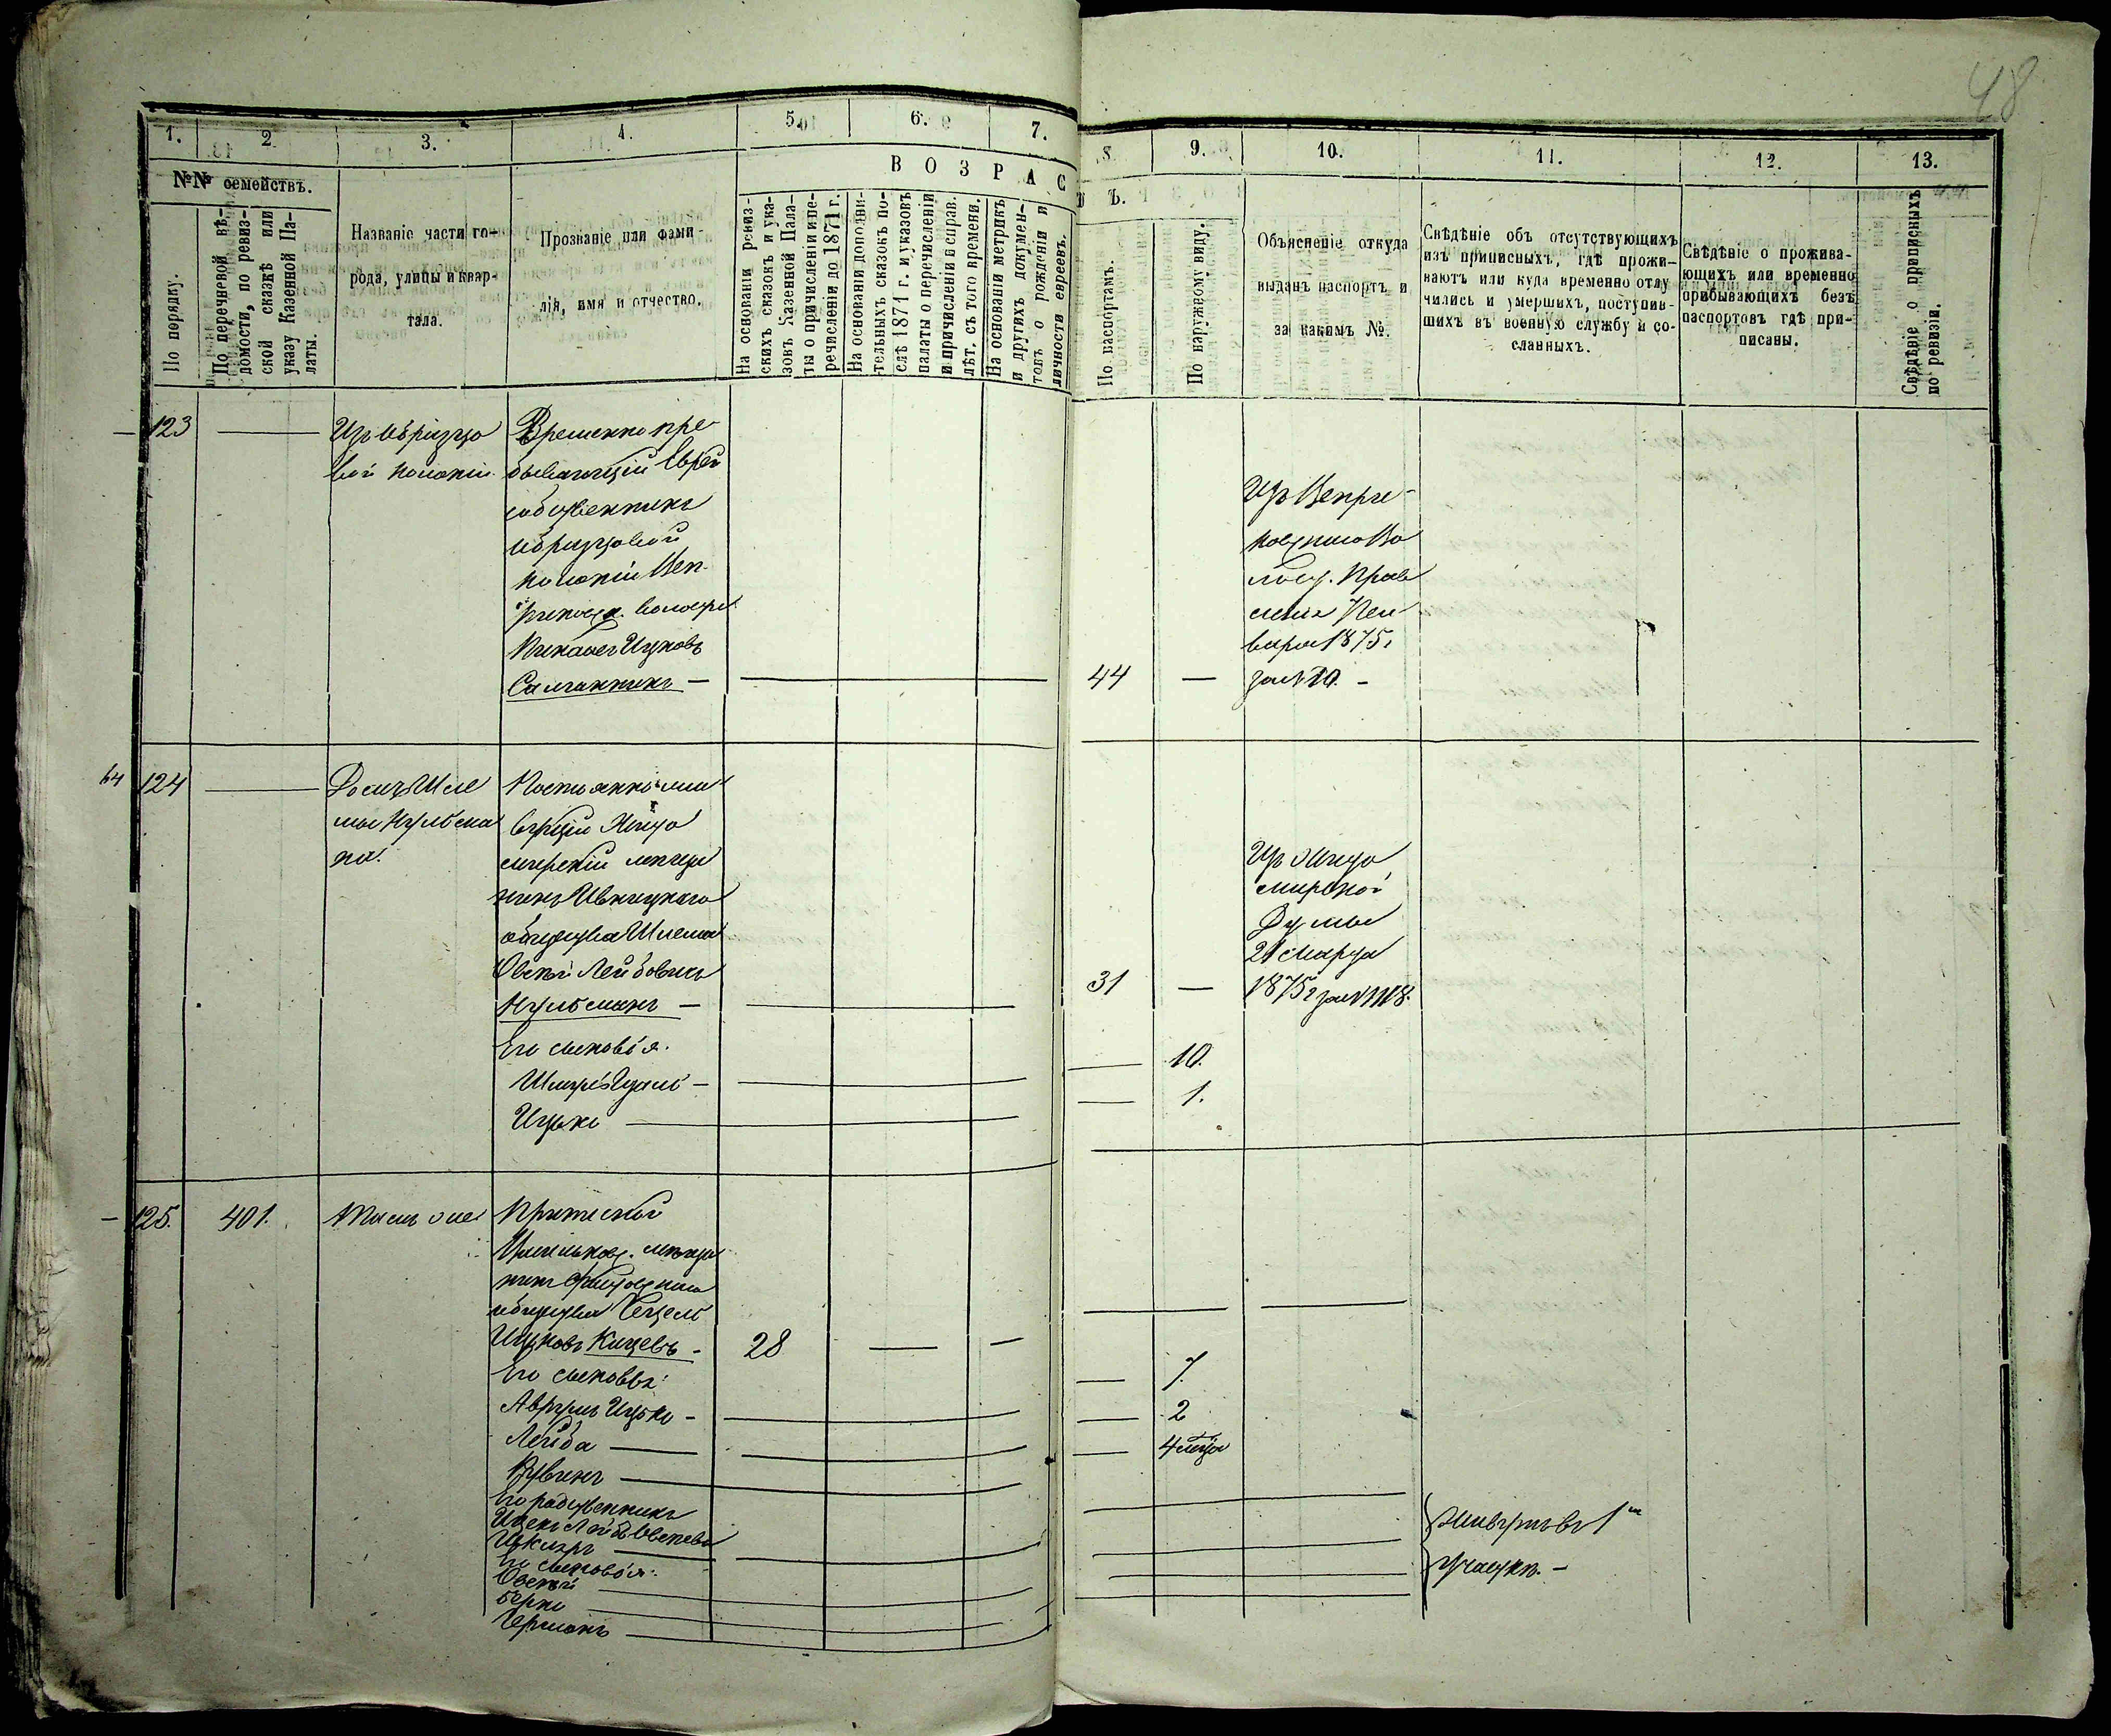 48
1. 2. 3. 4. 5. 6. 7. 8. 9. 10. 11. 12. 13.
№№ семействъ.
В О З Р А С Т Ъ.
По порядку.
По перечневой вѣ-
домости, по ревиз-
ской сказкѣ или
указу Казенной Па-
латы.
Названіе части го-
рода, улицы и квар-
тала.
Прозваніе или фами-
лія, имя и отчество.
На основаніи ревиз-
скихъ сказокъ и ука-
зовъ Казенной Пала-
ты о причисленіи и пе-
речисленіи до 1871 г.
На основаніи дополни-
тельныхъ сказокъ по-
слѣ 1871 г. и указовъ
палаты о перечисленіи
и причисленіи в справ.
лѣт. съ того времени.
На основаніи метрикъ
и другихъ докумен-
товъ о рожденіи и
личности евреевъ.
По паспортамъ.
По наружному виду.
Объясненіе откуда
выданъ паспортъ и
за какимъ №.
Свѣдѣніе объ отсутствующихъ
изъ приписныхъ, гдѣ прожи-
ваютъ или куда временно отлу
чились и умершихъ, поступив-
шихъ въ военную службу и со-
сланныхъ.
Свѣдѣніе о прожива-
ющихъ или временно
прибывающихъ безъ
паспортовъ гдѣ при-
писаны.
Свѣдѣніе о приписныхъ
по ревизіи.
123
Изъ Образцо
вой колоніи
Временно пре
бывающій Еврей
собственникъ
образцовой
колоніи
волости
Ицковъ
Салганникъ
44
Изъ
Во
лост. Прав
ленія
варя 1875 г
за № 20.
64 124
Домъ Шле
мы Кульсма
на.
Постоянно жи
вущій Жито
мирскій мѣща
нинъ Ивницкаго
общества Шлема
Овсѣй Лейбовичъ
Кульсманъ
31
Изъ Жито
мирской
Думы
21 Марта
1875 г за №
Его сыновья.
10.
1.
Ицко
125. 401.
Тамъ же
Приписной
Васильков. мѣща
нинъ Фастовскаго
общества Гецель
Ицковъ Кицевъ
28
Его сыновья:
Аврумъ Ицко
7.
Лейба
2
Рувинъ
4 мѣс
Его родственникъ
Ицекъ Лейбъ Овсѣевъ
Его сыновья:
Овсѣй
Берко
Гершонъ
Живутъ въ 1мъ
участкѣ.